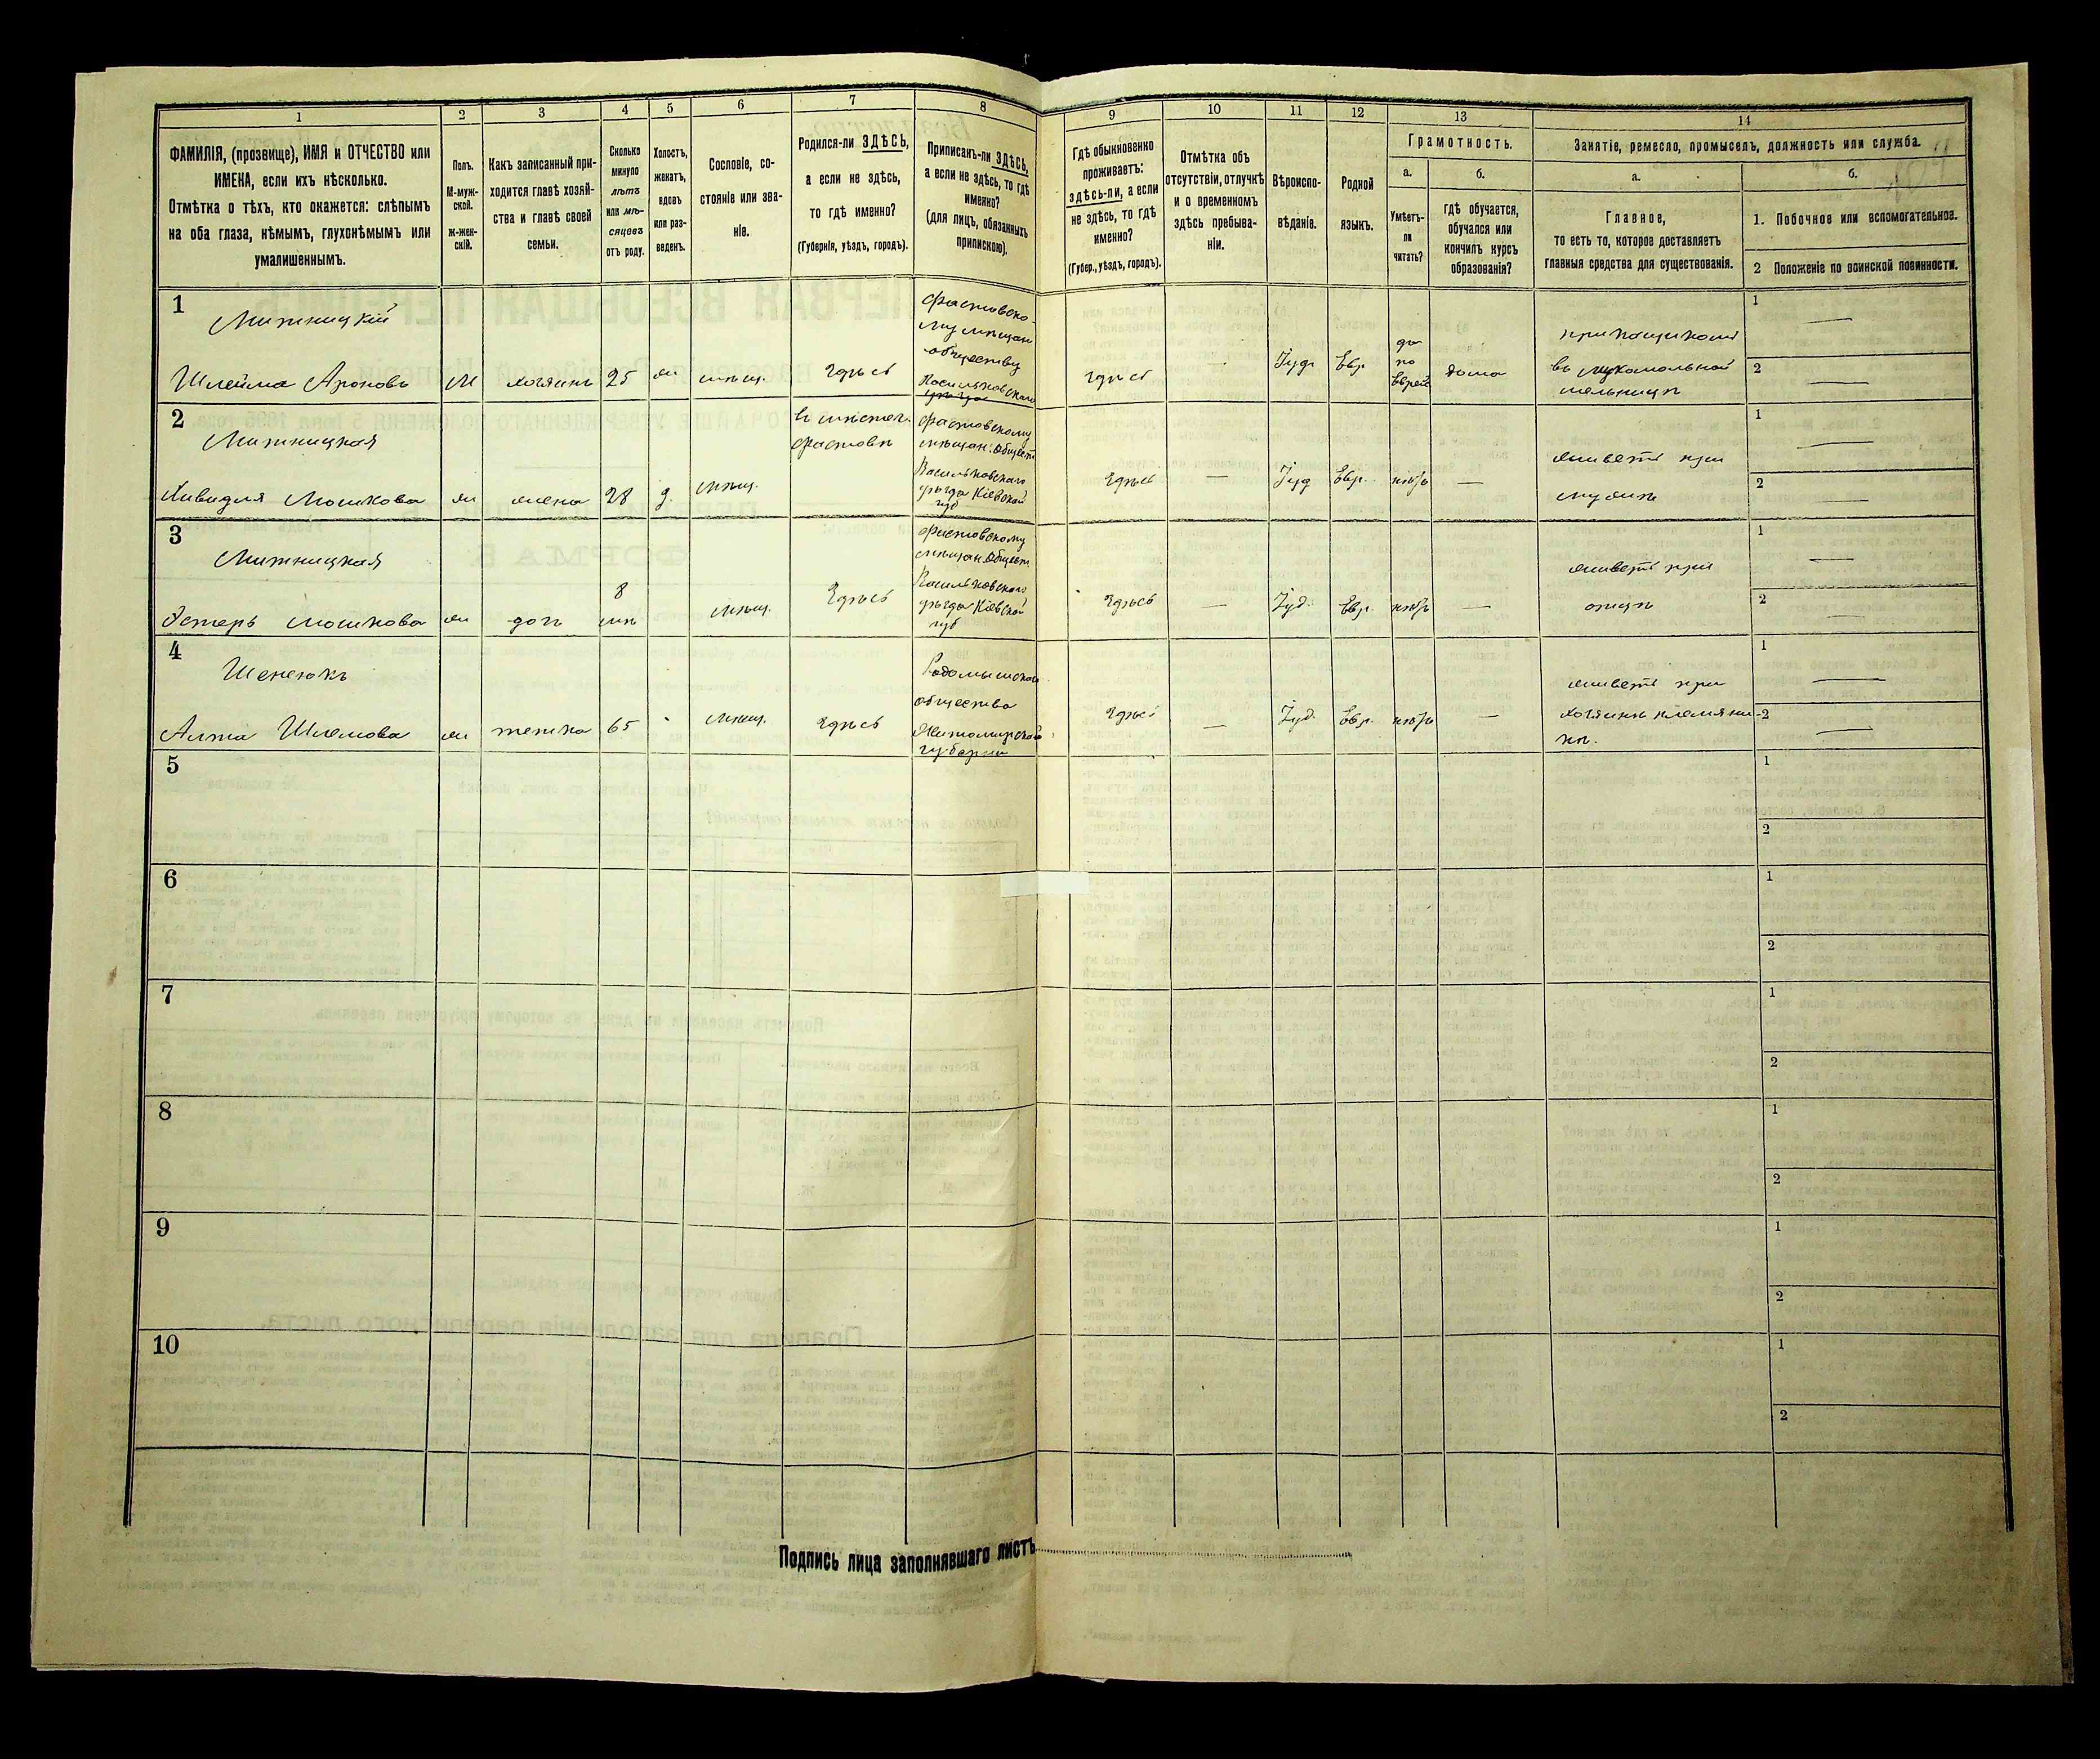 1
2
3
4
5
6
7
8
9
10
11
12
13
14
ФАМИЛІЯ, (прозвище), ИМЯ и ОТЧЕСТВО или
ИМЕНА, если ихъ нѣсколько.
Отмѣтка о тѣхъ, кто окажется: слѣпымъ
на оба глаза, нѣмымъ, глухонѣмымъ или
умалишеннымъ.
Полъ.
М-муж-
ской.
ж-жен-
скій.
Какъ записанный при-
ходится главѣ хозяй-
ства и главѣ своей
семьи.
Сколько
минуло
лѣтъ
или мѣ-
сяцевъ
отъ роду.
Холостъ,
женатъ,
вдовъ
или раз-
веденъ.
Сословіе, со-
стояніе или зва-
ніе.
Родился-ли ЗДѢСЬ,
а если не здѣсь,
то гдѣ именно?
(Губернія, уѣздъ, городъ).
Приписанъ-ли ЗДѢСЬ,
а если не здѣсь, то гдѣ
именно?
(для лицъ, обязанныхъ
припискою).
Гдѣ обыкновенно
проживаетъ:
здѣсь-ли, а если
не здѣсь, то гдѣ
именно?
(Губер., уѣздъ, городъ).
Отмѣтка объ
отсутствіи, отлучкѣ
и о временномъ
здѣсь пребыва-
ніи.
Вѣроиспо-
вѣданіе.
Родной
языкъ.
Грамотность.
а.
Умѣетъ-
ли
читать?
б.
гдѣ обучается,
обучался или
кончилъ курсъ
образованія?
Занятіе, ремесло, промыселъ, должность или служба.
а.
Главное,
то есть то, которое доставляетъ
главныя средства для существованія.
б.
1. Побочное или вспомогательное.
2 Положеніе по воинской повинности.
1
Житницкій
Шлейма Ароновъ
М
хозяинъ
25
ж
мѣщ.
Здѣсь
Фастовско-
му мѣщан
обществу
Васильковскаго
уѣзда
Здѣсь
—
Іуд.
Евр.
да
по
Еврей
дома
прикащикомъ
въ мукомольной
мельницѣ
1
—
2
—
2
Житницкая
Хивидля Мошкова
ж
жена
28
з.
мѣщ.
въ мѣстеч.
Фастовѣ
Фастовскому
мѣщан. Общест
Васильковскаго
уѣзда Кіевской
губ
Здѣсь
—
Іуд
Евр.
нѣтъ
—
живетъ при
мужѣ
1
—
2
—
3
Житницкая
Эстеръ Мошкова
ж
доч
8
мѣ
мѣщ.
Здѣсь
Фастовскому
мѣщан. Общест
Васильковскаго
уѣзда Кіевской
губ
Здѣсь
—
Іуд.
Евр.
нѣтъ
—
живетъ при
отцѣ
1
—
2
—
4
Шенсюкъ
Алта Шлемова
ж
тетка
65
мѣщ.
Здѣсь
Радомышскаго
общества
Житомирской
губерніи
Здѣсь
—
Іуд.
Евр.
нѣтъ
—
живетъ при
хозяинѣ племянни-
кѣ.
1
—
2
—
5
1
2
6
1
2
7
1
2
8
1
2
9
1
2
10
1
2
Подпись лица заполнявшаго листъ